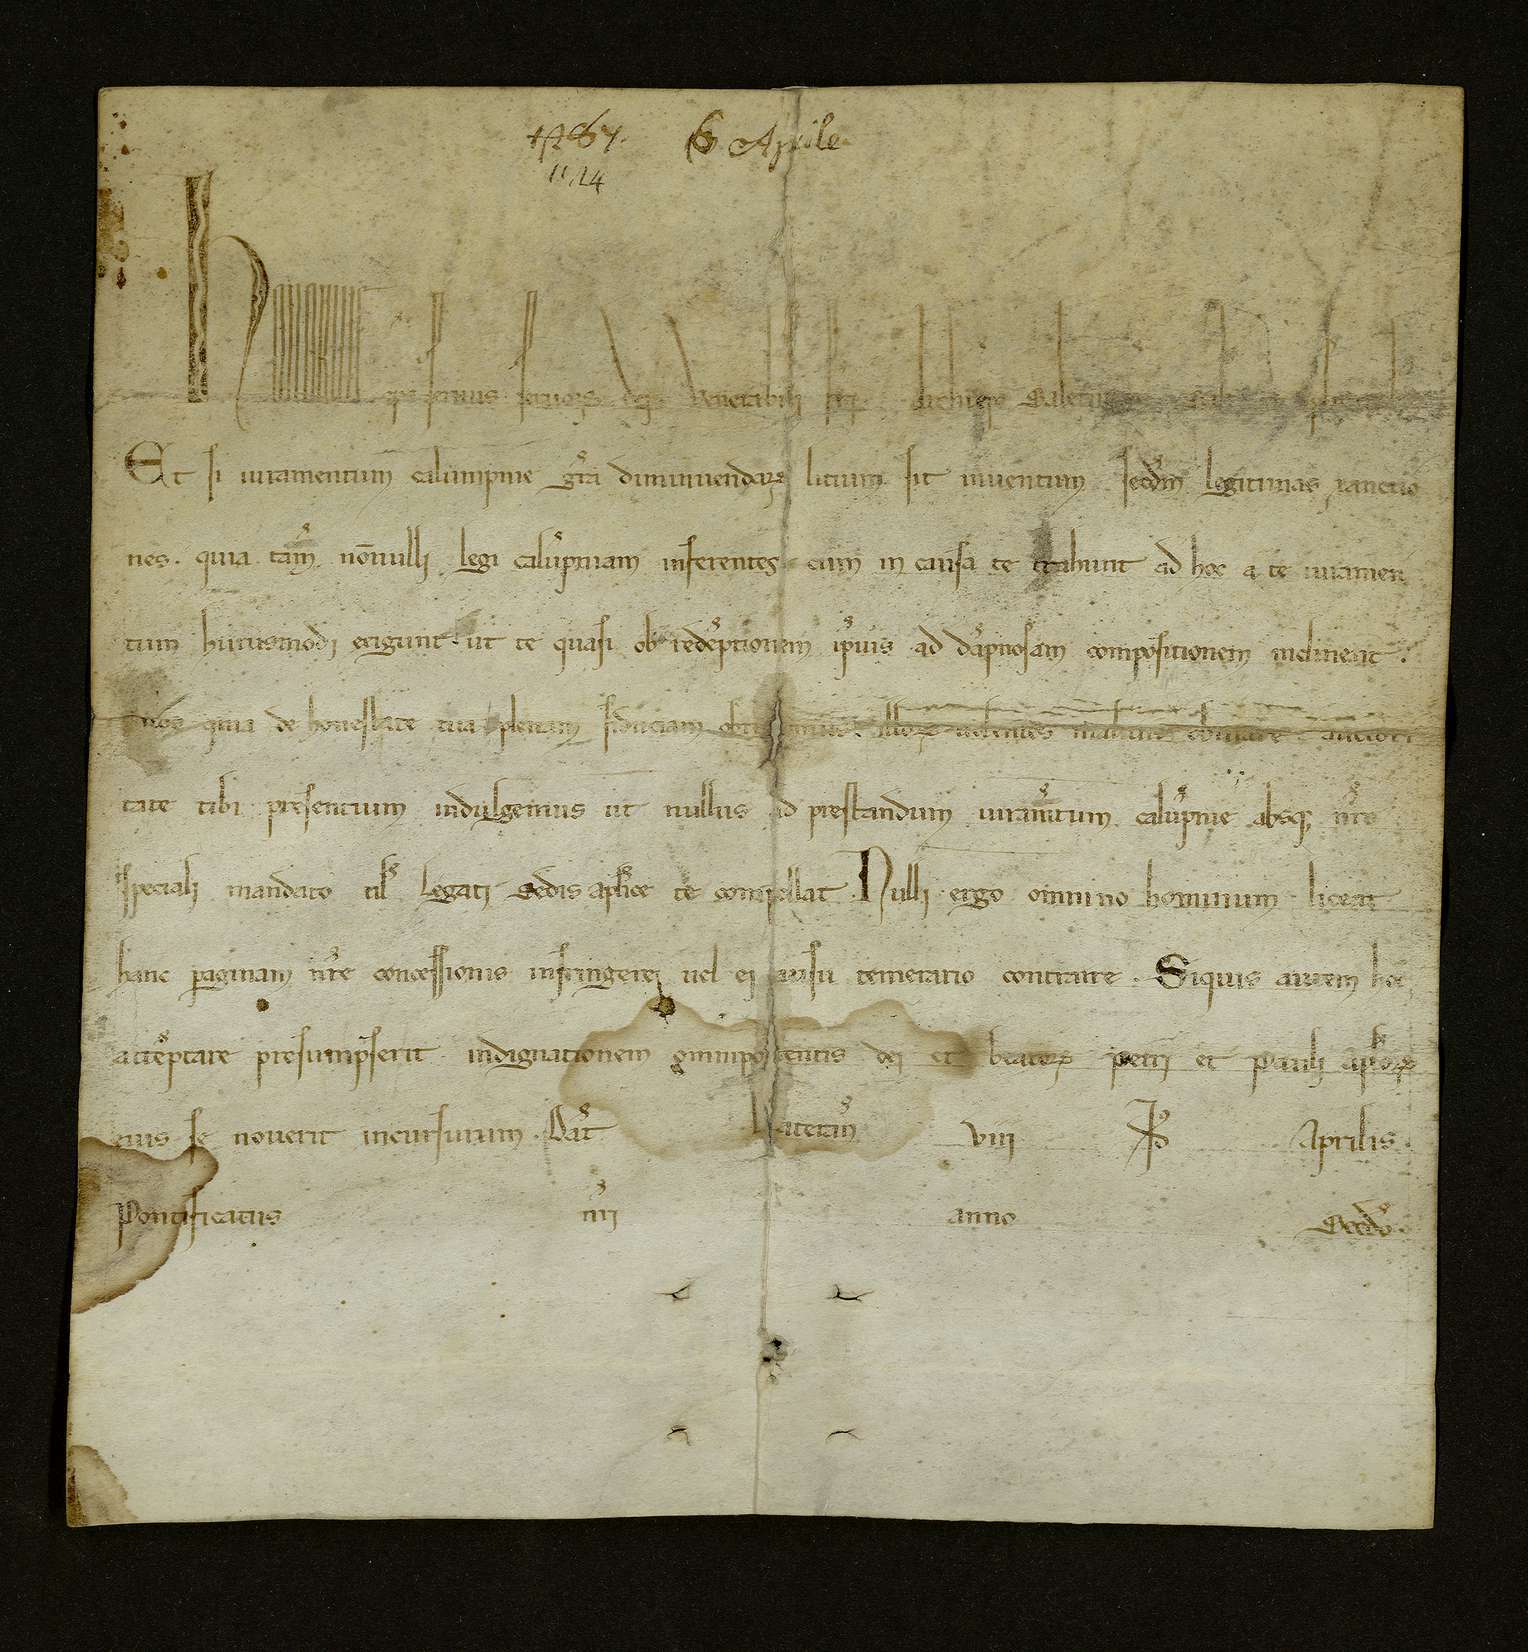 1267. 6 Aprile
1124
ep̄s seruus seruoꝝ dei. Venerabili
Et si iuramentum calumpnie gr̃a diminuendaꝝ litium sit inuentum scd̃m legitimas sanctio
nes. quia tam̃ nōnulli legi calũpniam inferentes cum in causa te trahunt ad hoc a te iuramen
tum huiusmodi exigunt ut te quasi ob redẽptionem ip̃ius ad dãpnosam compositionem inclinent.
nos quia de honestate tua plenam fiduciam illoꝝ uolentes malitie obuiare auctori
tate tibi presentium indulgemus ut nullus ad prestandum iuram̃tum calũpnie absqꝫ nr̃o
speciali mandato uĺ legati sedis aplice te compellat. Nulli ergo omnino hominum liceat
hanc paginam nr̃e concessionis infringere uel ei ausu temerario contraire. Siquis autem hoc
attẽptare presumpserit indignationem omnipotentis dei et beatoꝝ Petri et Pauli aploꝝ
eius se nouerit incursurum. Dat̃ Lateran̄ viii Id̃ Aprilis.
Pontificatus nr̃i anno Scd̃o.